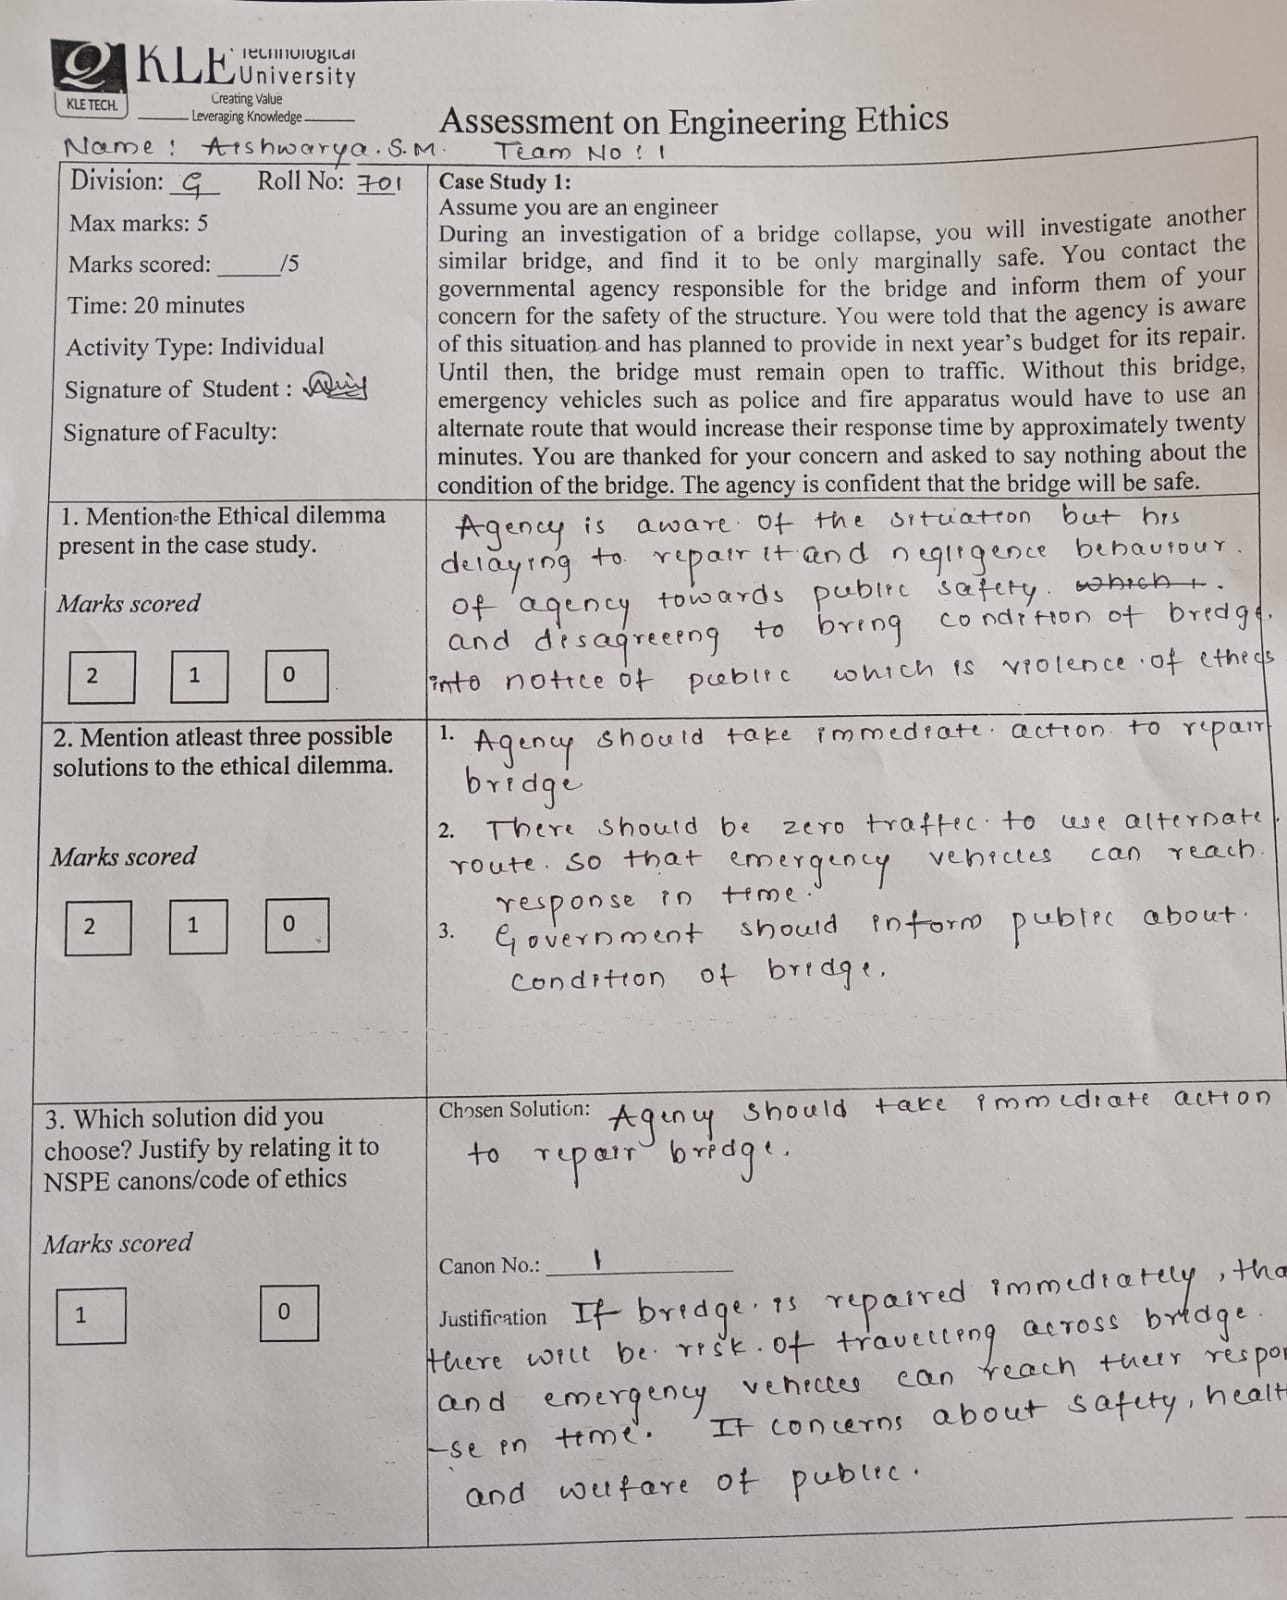 KLE Technological
University
KLE TECH.
Creating Value
Leveraging Knowledge
Assessment on Engineering Ethics
Name : Aishwarya . S. M. Team No : 1
Division: G Roll No: 701
Max marks: 5
Marks scored: _____/5
Time: 20 minutes
Activity Type: Individual
Signature of Student :
Signature of Faculty:
Case Study 1:
Assume you are an engineer
During an investigation of a bridge collapse, you will investigate another
similar bridge, and find it to be only marginally safe. You contact the
governmental agency responsible for the bridge and inform them of your
concern for the safety of the structure. You were told that the agency is aware
of this situation and has planned to provide in next year's budget for its repair.
Until then, the bridge must remain open to traffic. Without this bridge,
emergency vehicles such as police and fire apparatus would have to use an
alternate route that would increase their response time by approximately twenty
minutes. You are thanked for your concern and asked to say nothing about the
condition of the bridge. The agency is confident that the bridge will be safe.
1. Mention the Ethical dilemma
present in the case study.
Marks scored
2 1 0
Agency is aware of the situation but his
delaying to repair it and negligence behaviour
of agency towards public safety. which
and disagreeing to bring condition of bridge
into notice of public which is violence of ethics
2. Mention atleast three possible
solutions to the ethical dilemma.
Marks scored
2 1 0
1. Agency should take immediate action to repair
bridge
2. There should be zero traffic to use alternate
route. so that emergency vehicles can reach
response in time.
3. Government should inform public about
condition of bridge.
3. Which solution did you
choose? Justify by relating it to
NSPE canons/code of ethics
Marks scored
1 0
Chosen Solution: Agency should take immediate action
to repair bridge.
Canon No.: 1
Justification If bridge is repaired immediately, tha
there will be risk of travelling across bridge
and emergency vehicles can reach their respon
-se in time. It concerns about safety, healt
and welfare of public.